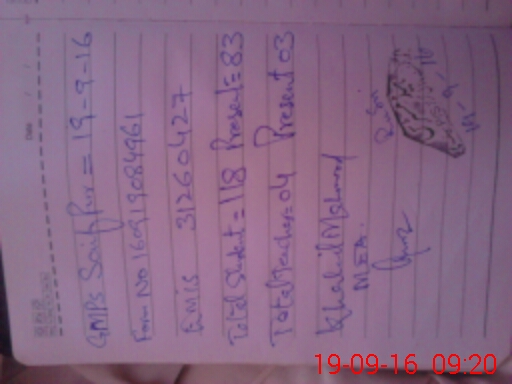 GMPS Saifpur = 19-9-16
Form No 160919084961
Emis 31260427
Total Student = 118 Present = 83
Total Teacher = 04 Present 03
Khalil Mahmood
MEA.
19-9-16
Date
19-09-16 09:20